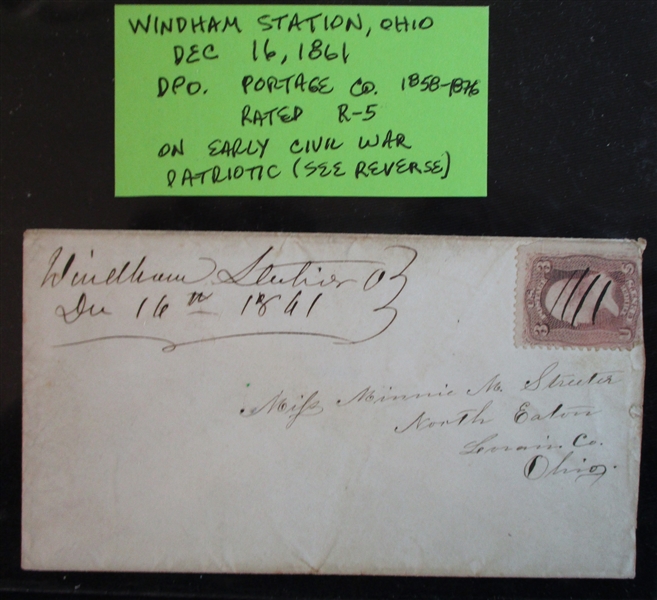 WINDHAM STATION, OHIO
DEC 16, 1861
DPO. PORTAGE CO. 1858-1876
RATED R-5
ON EARLY CIVIL WAR
PATRIOTIC (SEE REVERSE)
Windham Station O
Dec 16th 1861
3 3
Miss Minnie M. Streeter
North Eaton
Lorain Co.
Ohio.